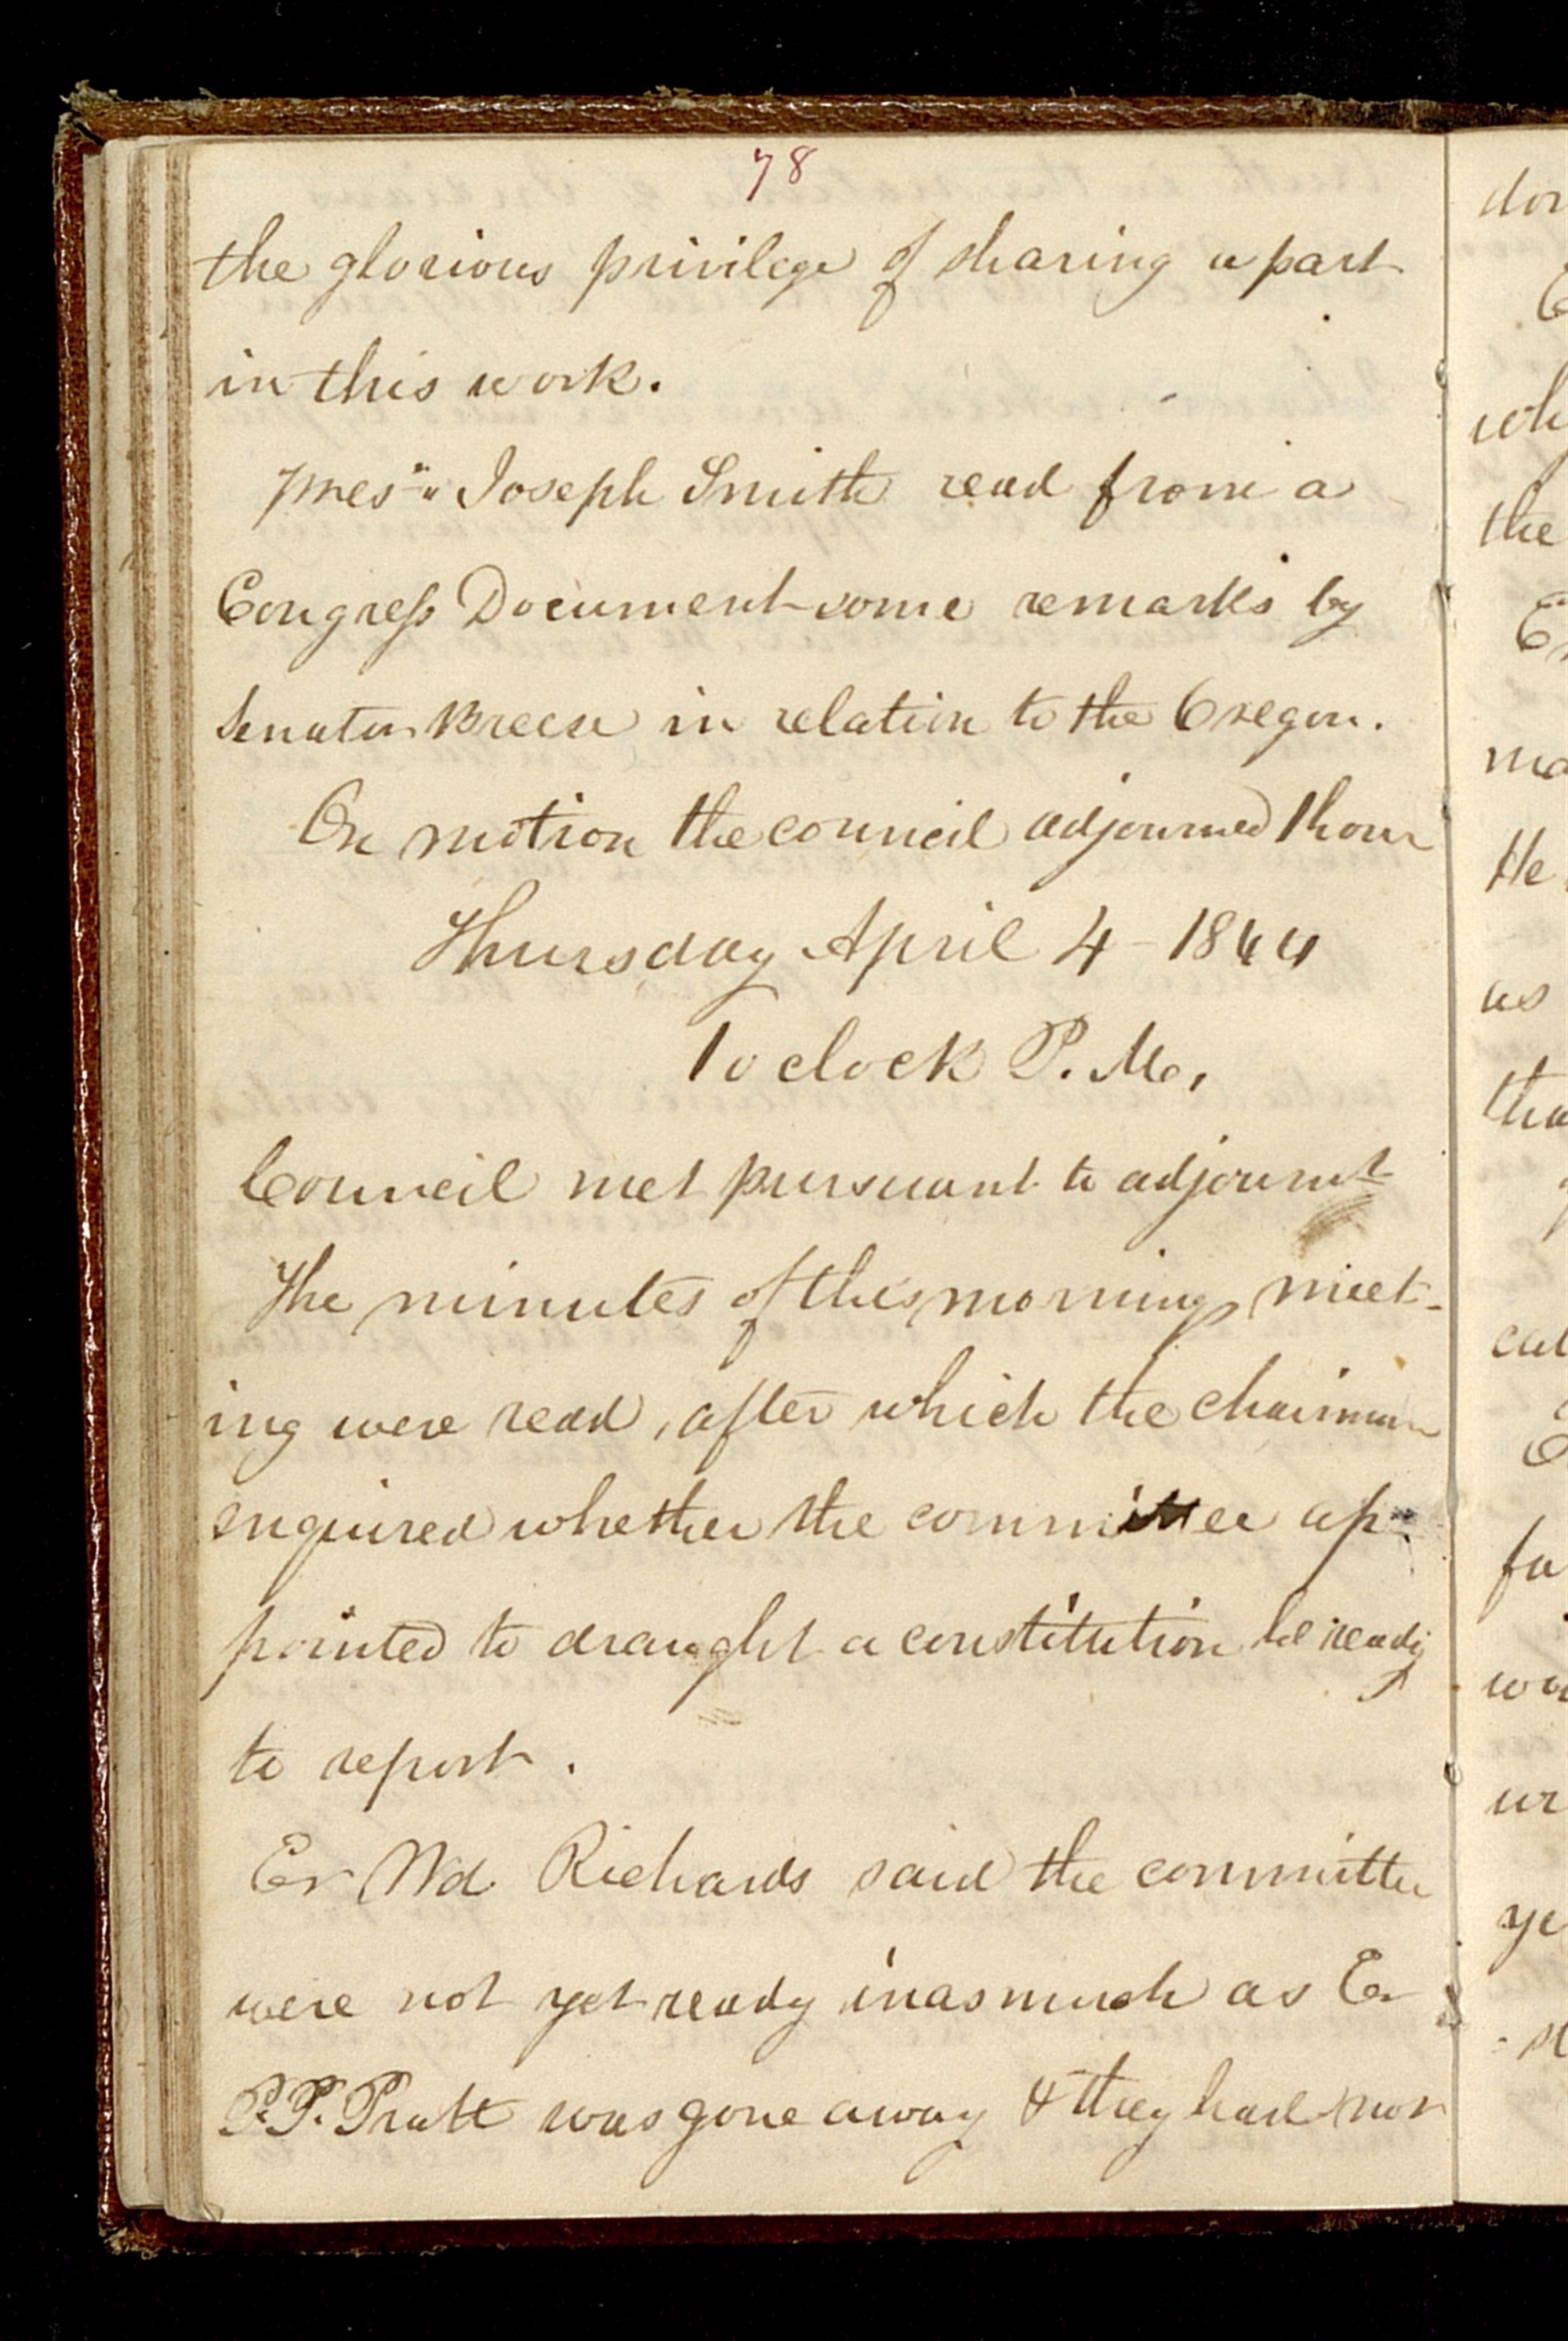 78
the glorious privilege of sharing a part
in this work.
Pres.t Joseph Smith read from a
Congress Document some remarks by
Senator Breese in relation to the Oregon.
On motion the council adjourned 1 hour
Thursday April 4 - 1844
1 o clock P. M.
Council met pursuant to adjournt
The minutes of this mornings meet-
ing were read, after which the chairman
enquired whether the committee ap-
pointed to draught a constitution be ready
to report.
Er Wd Richards said the committee
were not yet ready inasmuch as Er
P. P. Pratt was gone away & they had not
don
wh
the
Er
ma
He
as
tha
cal
fa
wo
ur
ye